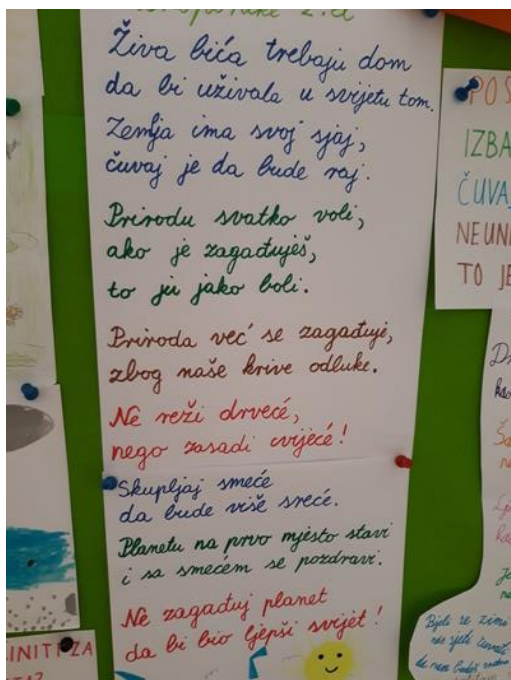 2.a
Živa bića trebaju dom
da bi uživala u svijetu tom.
Zemlja ima svoj sjaj,
čuvaj je da bude raj.
Prirodu svatko voli,
ako je zagađuješ,
to ju jako boli.
Priroda već se zagađuje,
zbog naše krive odluke.
Ne reži drveće,
nego zasadi cvijeće!
Skupljaj smeće
da bude više sreće.
Planetu na prvo mjesto stavi
i sa smećem se pozdravi.
Ne zagađuj planet
da bi bio ljepši svijet!
PO S
IZBA
ČUVA
NEUNI
TO JE
INITI ZA
Bijeli se zimi